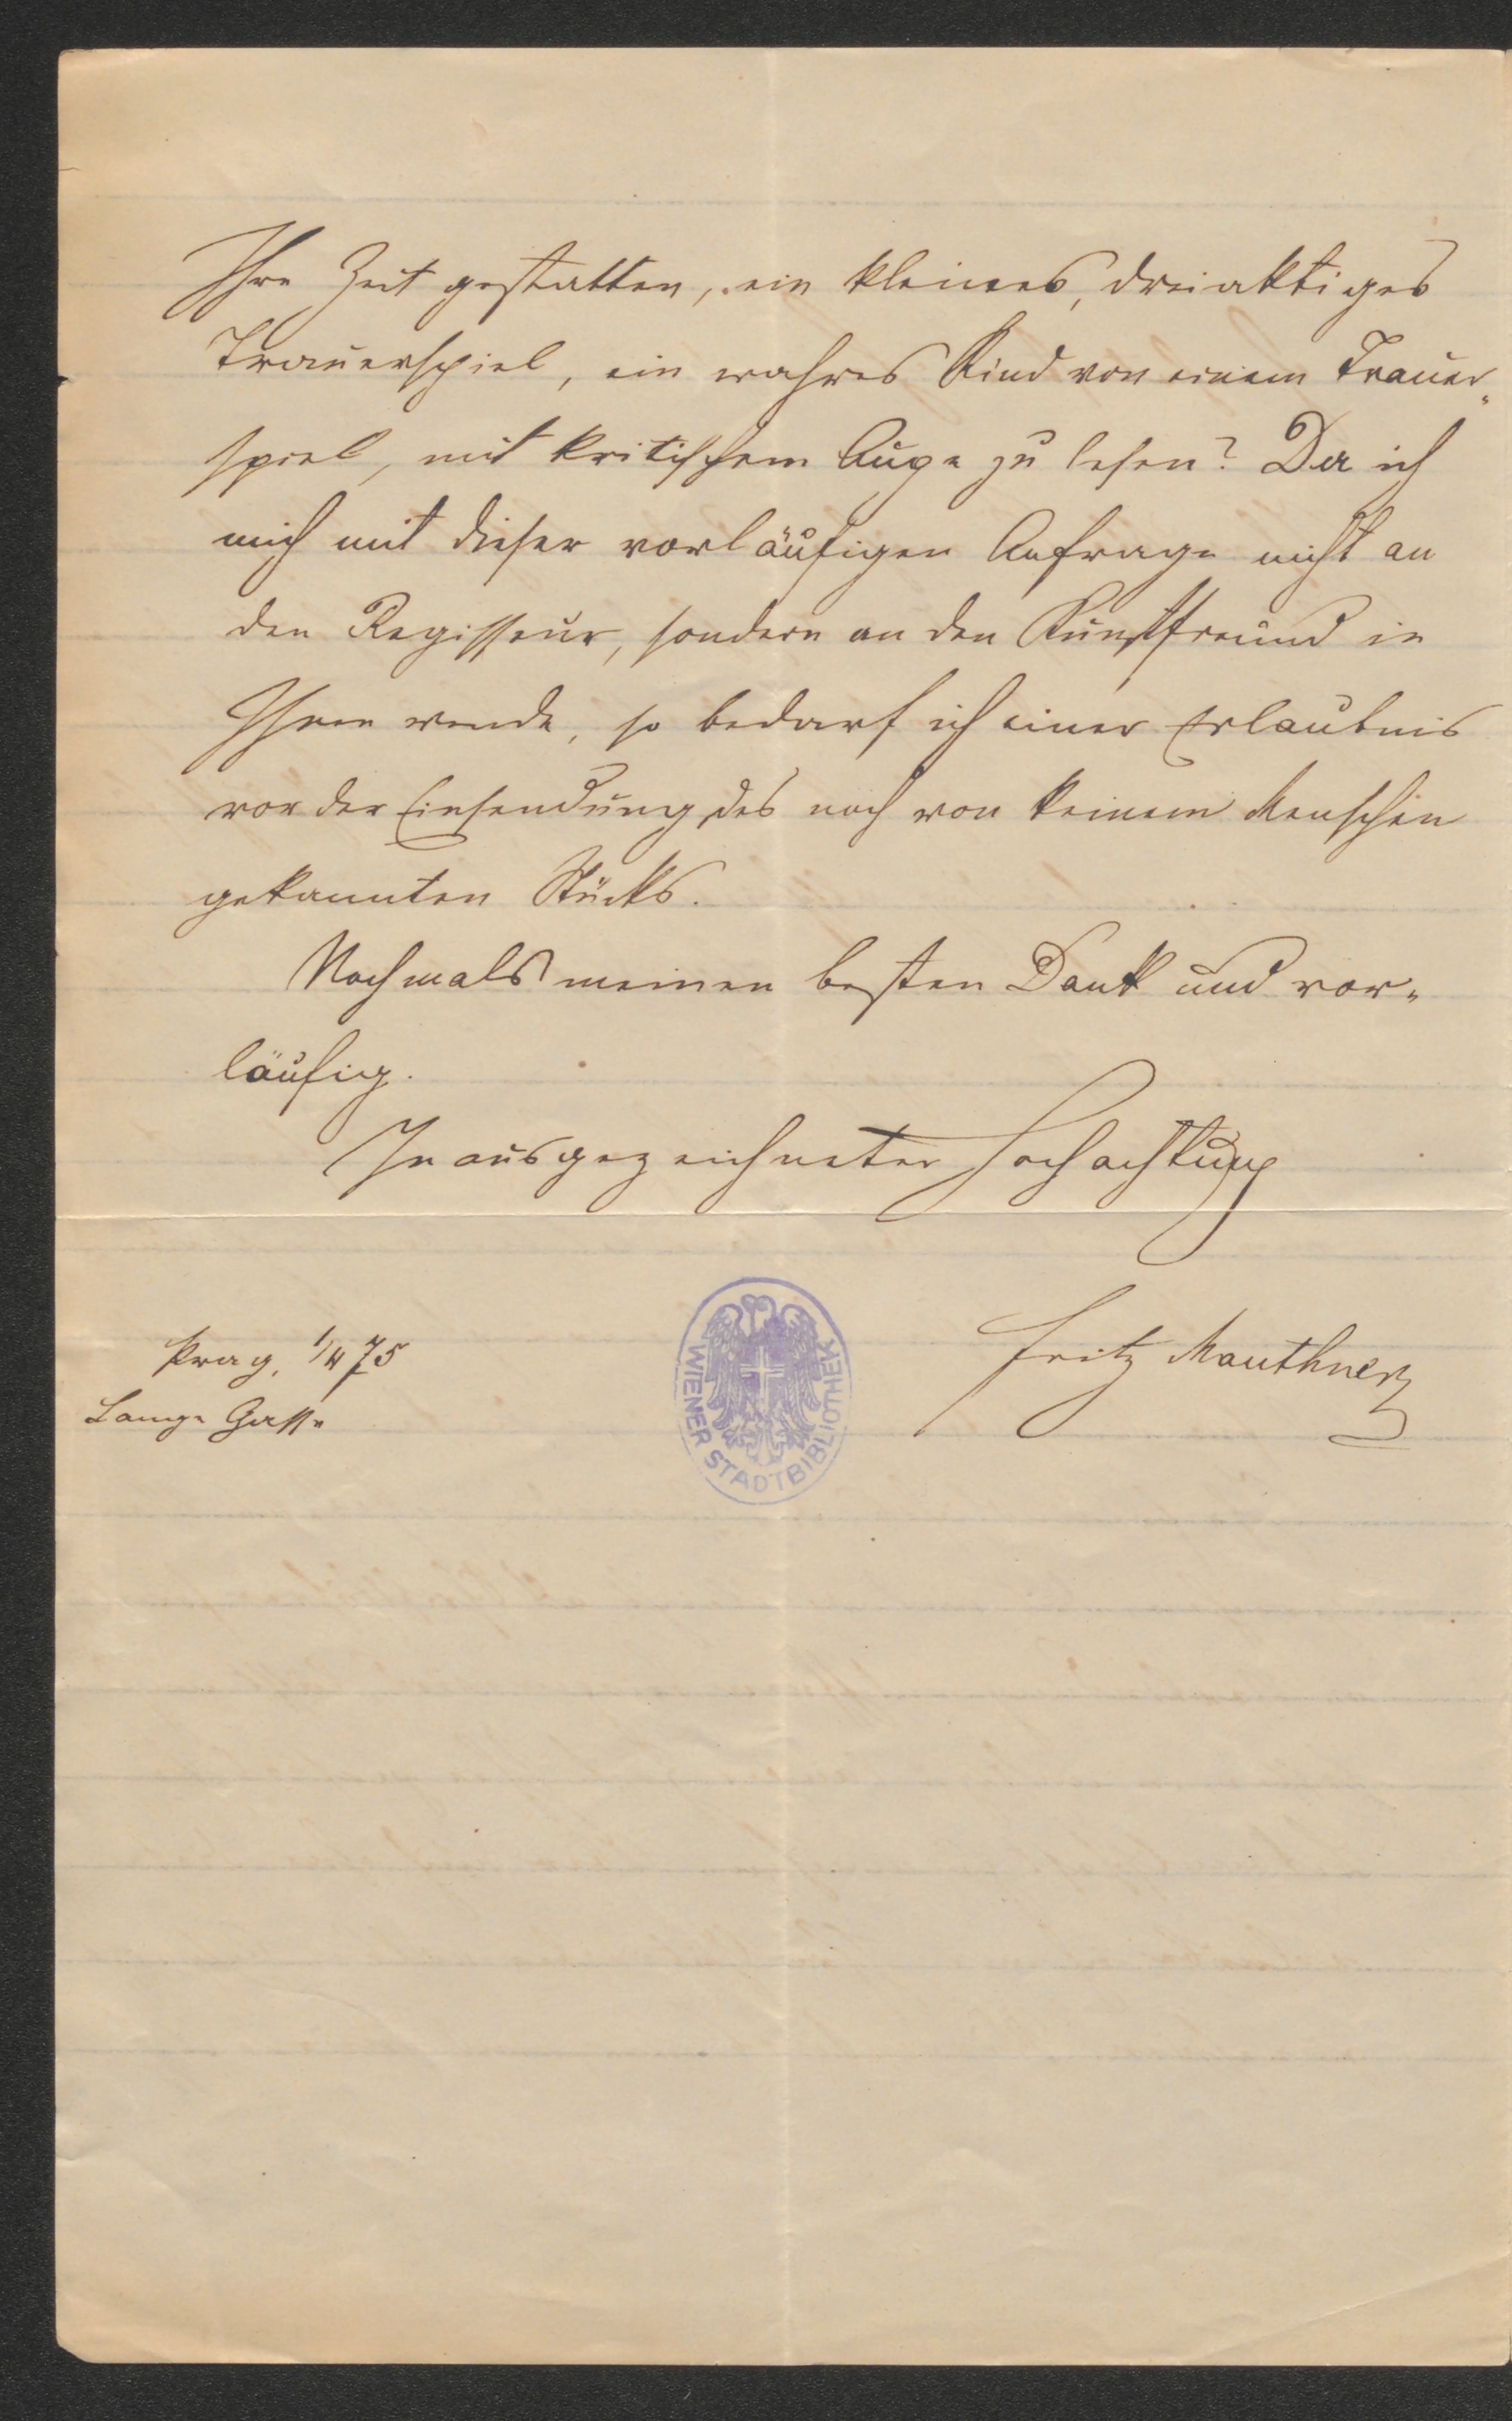 Ihre Zeit gestatten, ein kleines, dreiaktiges
Trauerspiel, ein wahres Kind von einem Trauer-
spiel, mit kritischem Auge zu lesen? Da ich
mich mit dieser vorläufigen Anfrage nicht an
den Regisseur, sondern an den Kunstfreund in
Ihnen wende, so bedarf ich einer Erlaubnis
vor der Einsendung des noch von keinem Menschen
gekannten Stücks.
Nochmals meinen besten Dank und vor-
läufig.
In ausgezeichneter Hochachtung
Fritz Mauthner
Prag, 75
Lange Gasse
WIENER STADTBIBLIOTHEK